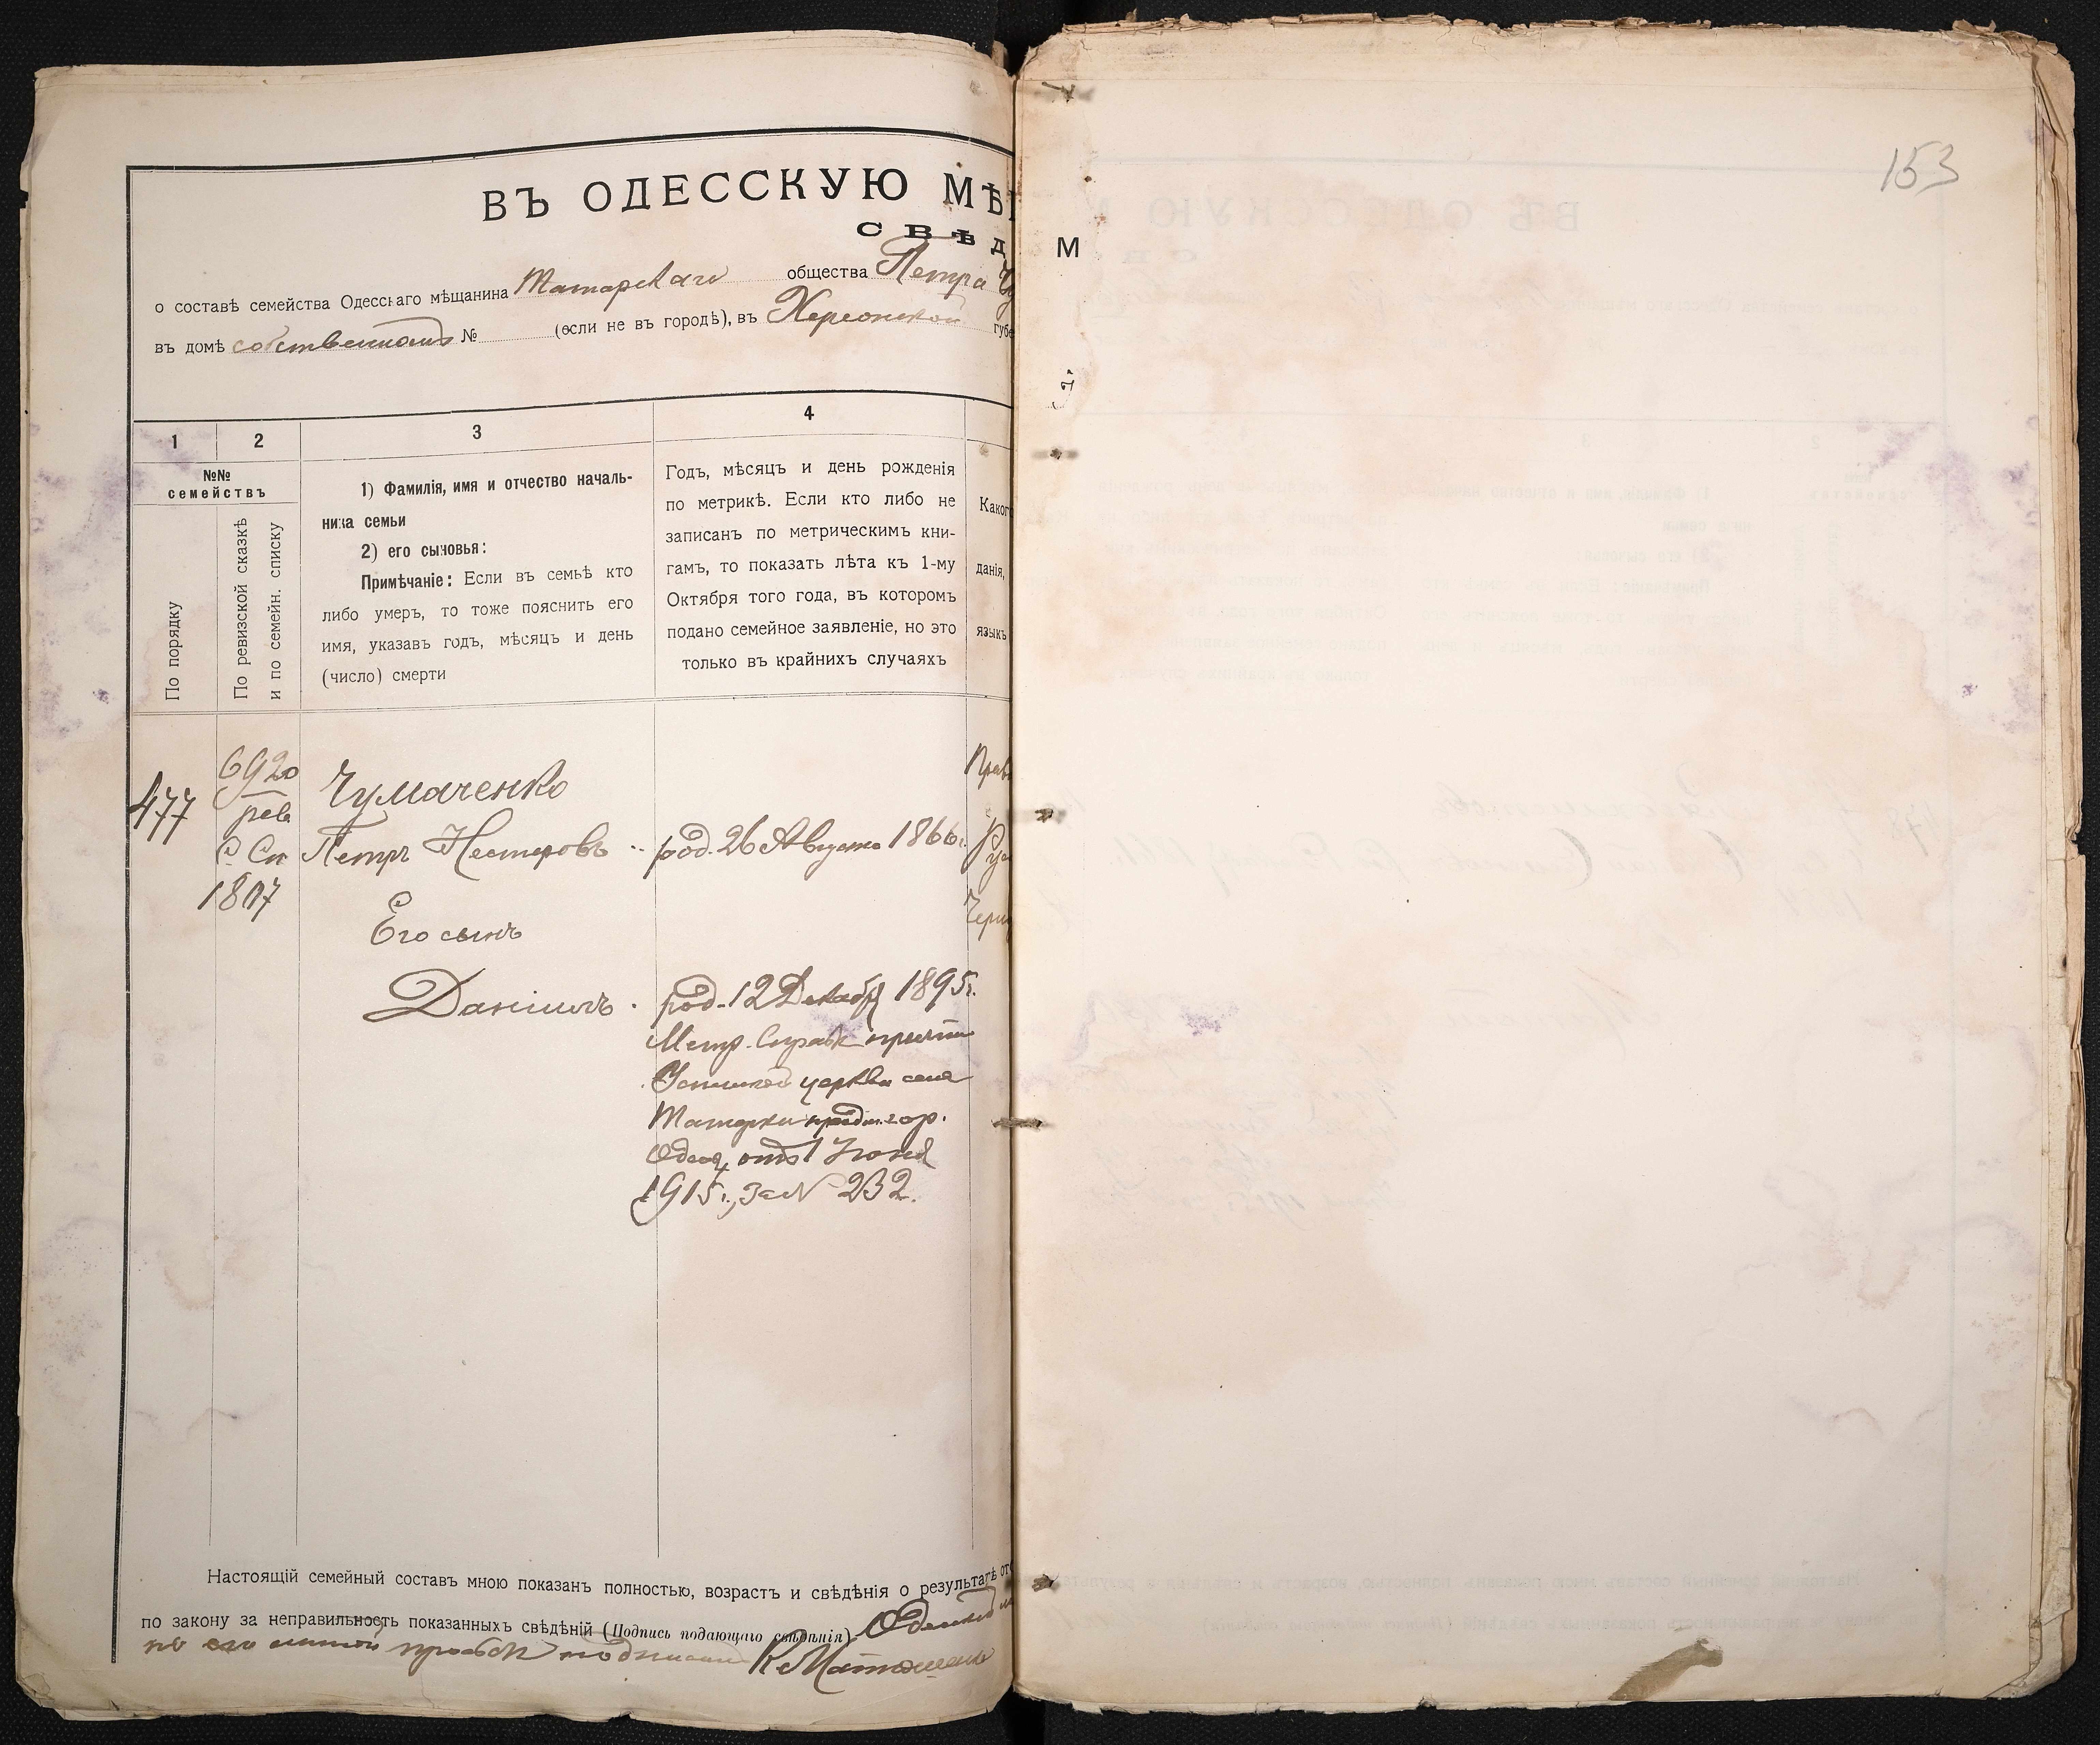 153
ВЪ ОДЕССКУЮ МѢ
СВѢД
М
о составѣ семейства Одесскаго мѣщанина Татарскаго общества Петра
въ домѣ собственномъ № (если не въ городѣ), въ Херсонской губе
1
2
3
4
№№
семействъ
По порядку
По ревизской сказкѣ
и по семейн. списку
1) Фамилія, имя и отчество началь-
ника семьи
2) его сыновья:
Примѣчаніе: Если въ семьѣ кто
либо умеръ, то тоже пояснить его
имя, указавъ годъ, мѣсяцъ и день
(число) смерти
Годъ, мѣсяцъ и день рожденія
по метрикѣ. Если кто либо не
записанъ по метрическимъ кни-
гамъ, то показать лѣта къ 1-му
Октября того года, въ которомъ
подано семейное заявленіе, но это
только въ крайнихъ случаяхъ
Каког
данія,
языкъ
477
6920
рев
С Сп
1807
Чумаченко
Петръ Нестеровъ
род. 26 Августа 1866г.
Прав
Рус
Черн
Его сынъ
Даніилъ
род. 12 Декабр 1895г.
Метр. Справк
Успенской церкви села
Татарки гор.
Одессы, отъ 1 Іюня
1915г., за № 232.
Настоящій семейный составъ мною показанъ полностью, возрастъ и свѣдѣнія о результатѣ от
по закону за неправильность показанныхъ свѣдѣній (Подпись подающаго свѣдѣнія)
по его личной просьбѣ подписалъ